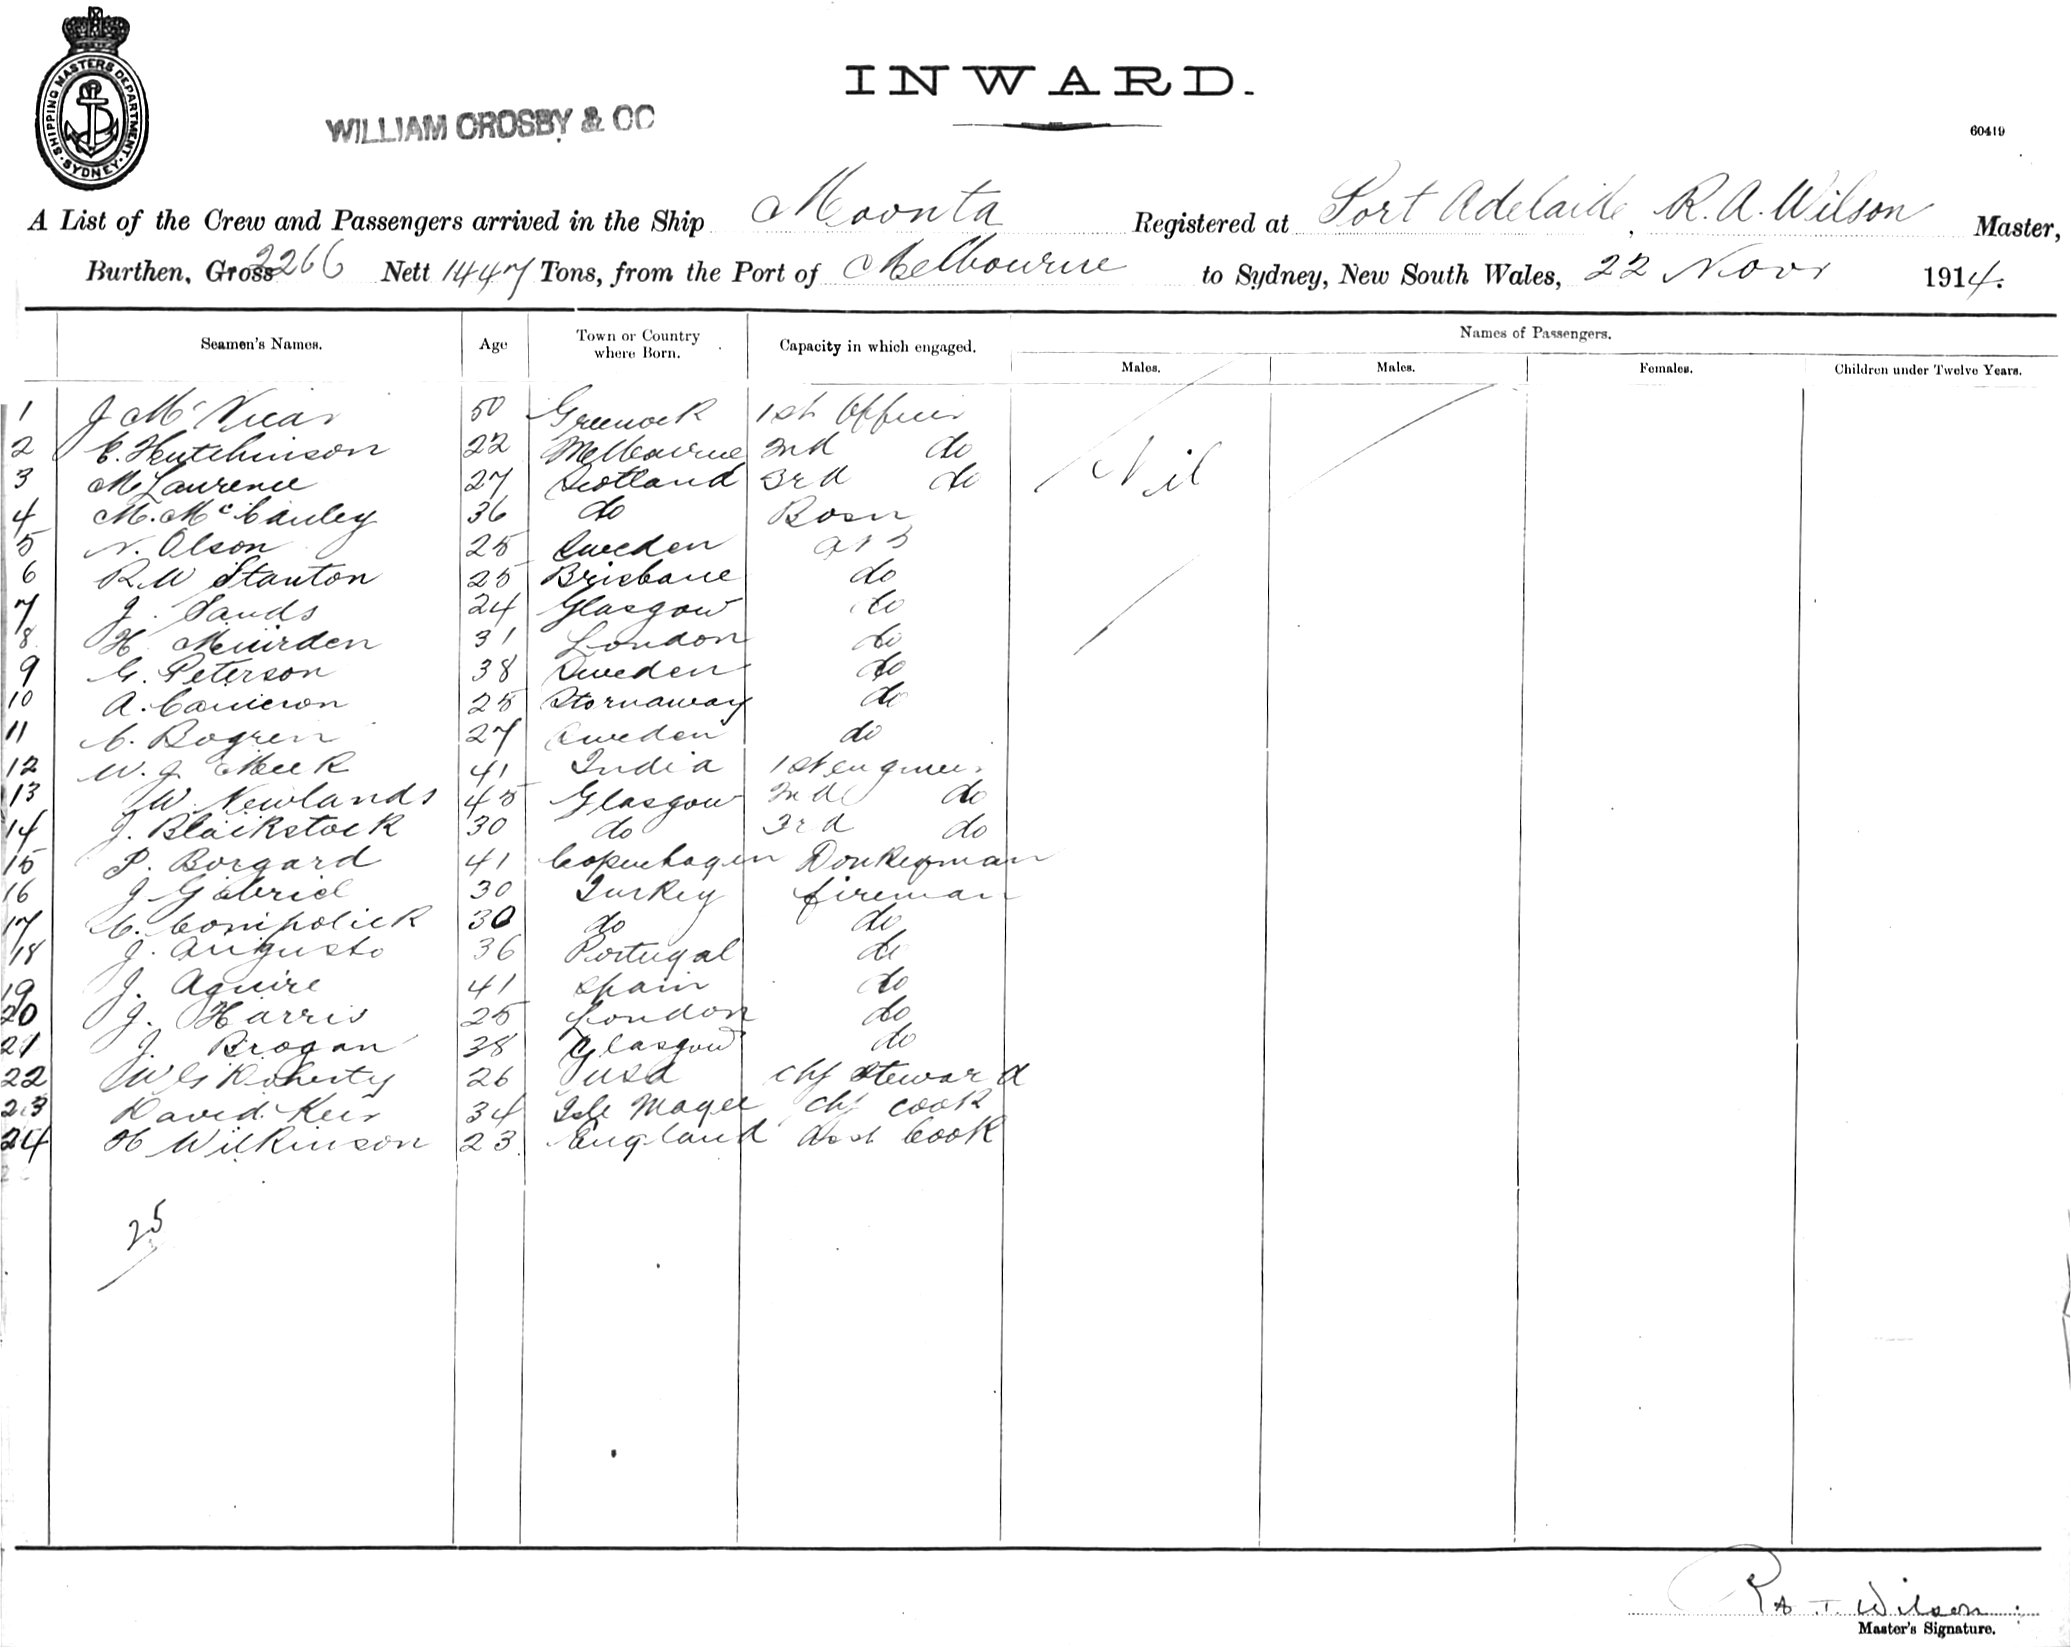 SHIPPING MASTERS DEPARTMENT
SYDNEY
INWARD.
WILLIAM CROSBY & CO
60419
A List of the Crew and Passengers arrived in the Ship Moonta Registered at Port Adelaide, R. A. Wilson Master,
Burthen, Gross 2266 Nett 1447 Tons, from the Port of Melbourne to Sydney, New South Wales, 22 Novr 1914.
Seamen's Names. Age Town or Country where Born. Capacity in which engaged. Names of Passengers.
Males. Males. Females. Children under Twelve Years.
1 J McVicar 50 Greenock 1st Officer
2 C. Hutchinson 22 Melbourne 2nd do
3 M Laurence 27 Scotland 3rd do Nil
4 M. McCauley 36 do Bosn
5 N. Olson 25 Sweden A B
6 R. W Stanton 25 Brisbane do
7 J. Sands 24 Glasgow do
8 H. Muirden 31 London do
9 G. Peterson 38 Sweden do
10 A. Cameron 25 Stornaway do
11 C. Bogren 27 Sweden do
12 W. J Meek 41 India 1st engineer
13 W. Newlands 45 Glasgow 2nd do
14 J. Blackstock 30 do 3rd do
15 P. Borgard 41 Copenhagen Donkeyman
16 J Gabriel 30 Turkey fireman
17 C. Compolick 30 do do
18 J. Augusto 36 Portugal do
19 J. Aguire 41 Spain do
20 J. Harris 25 London do
21 J. Brogan 38 Glasgow do
22 W G Doherty 26 USA Chf Steward
23 David Keir 34 Isle Magee Chf Cook
24 H Wilkinson 23 England Asst Cook
25
R A T Wilson
Master's Signature.